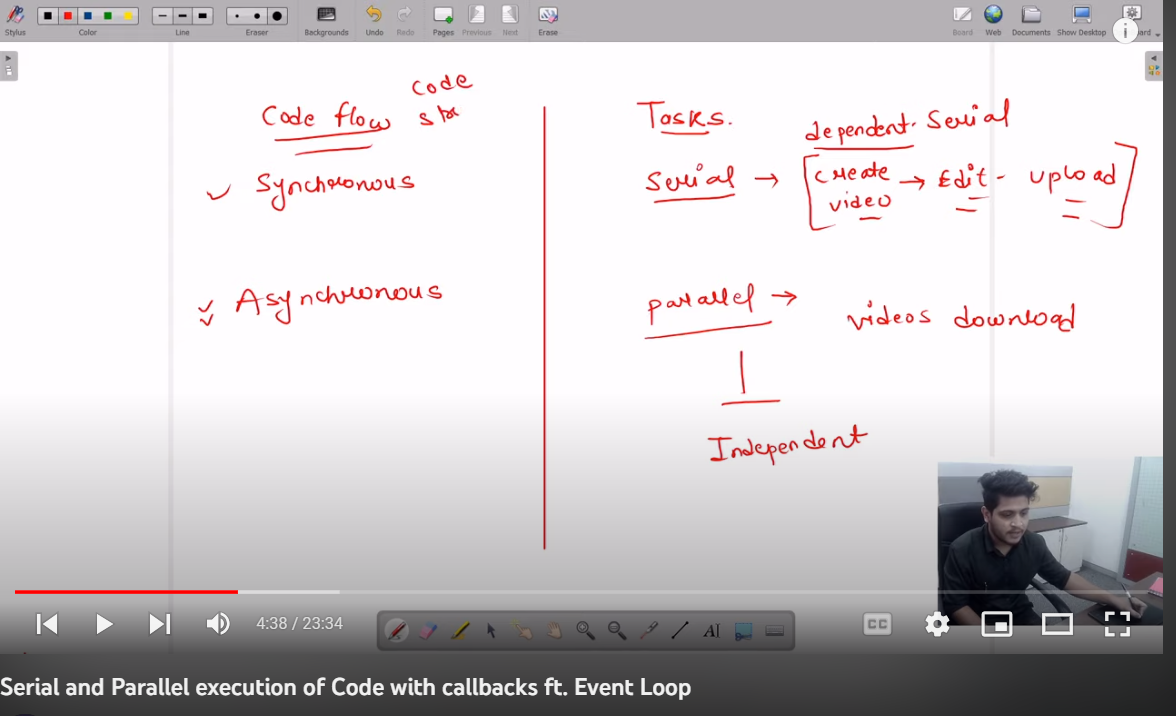 Stylus
Color
Line
Eraser
Backgrounds
Undo
Redo
Pages
Previous
Next
Erase
Board
Web
Documents
Show Desktop
Code flow
code
Synchronous
Asynchronous
Tasks.
dependent. Serial
Serial → [create video → Edit - upload]
parallel → videos download
Independent
4:38 / 23:34
CC
AI
Serial and Parallel execution of Code with callbacks ft. Event Loop